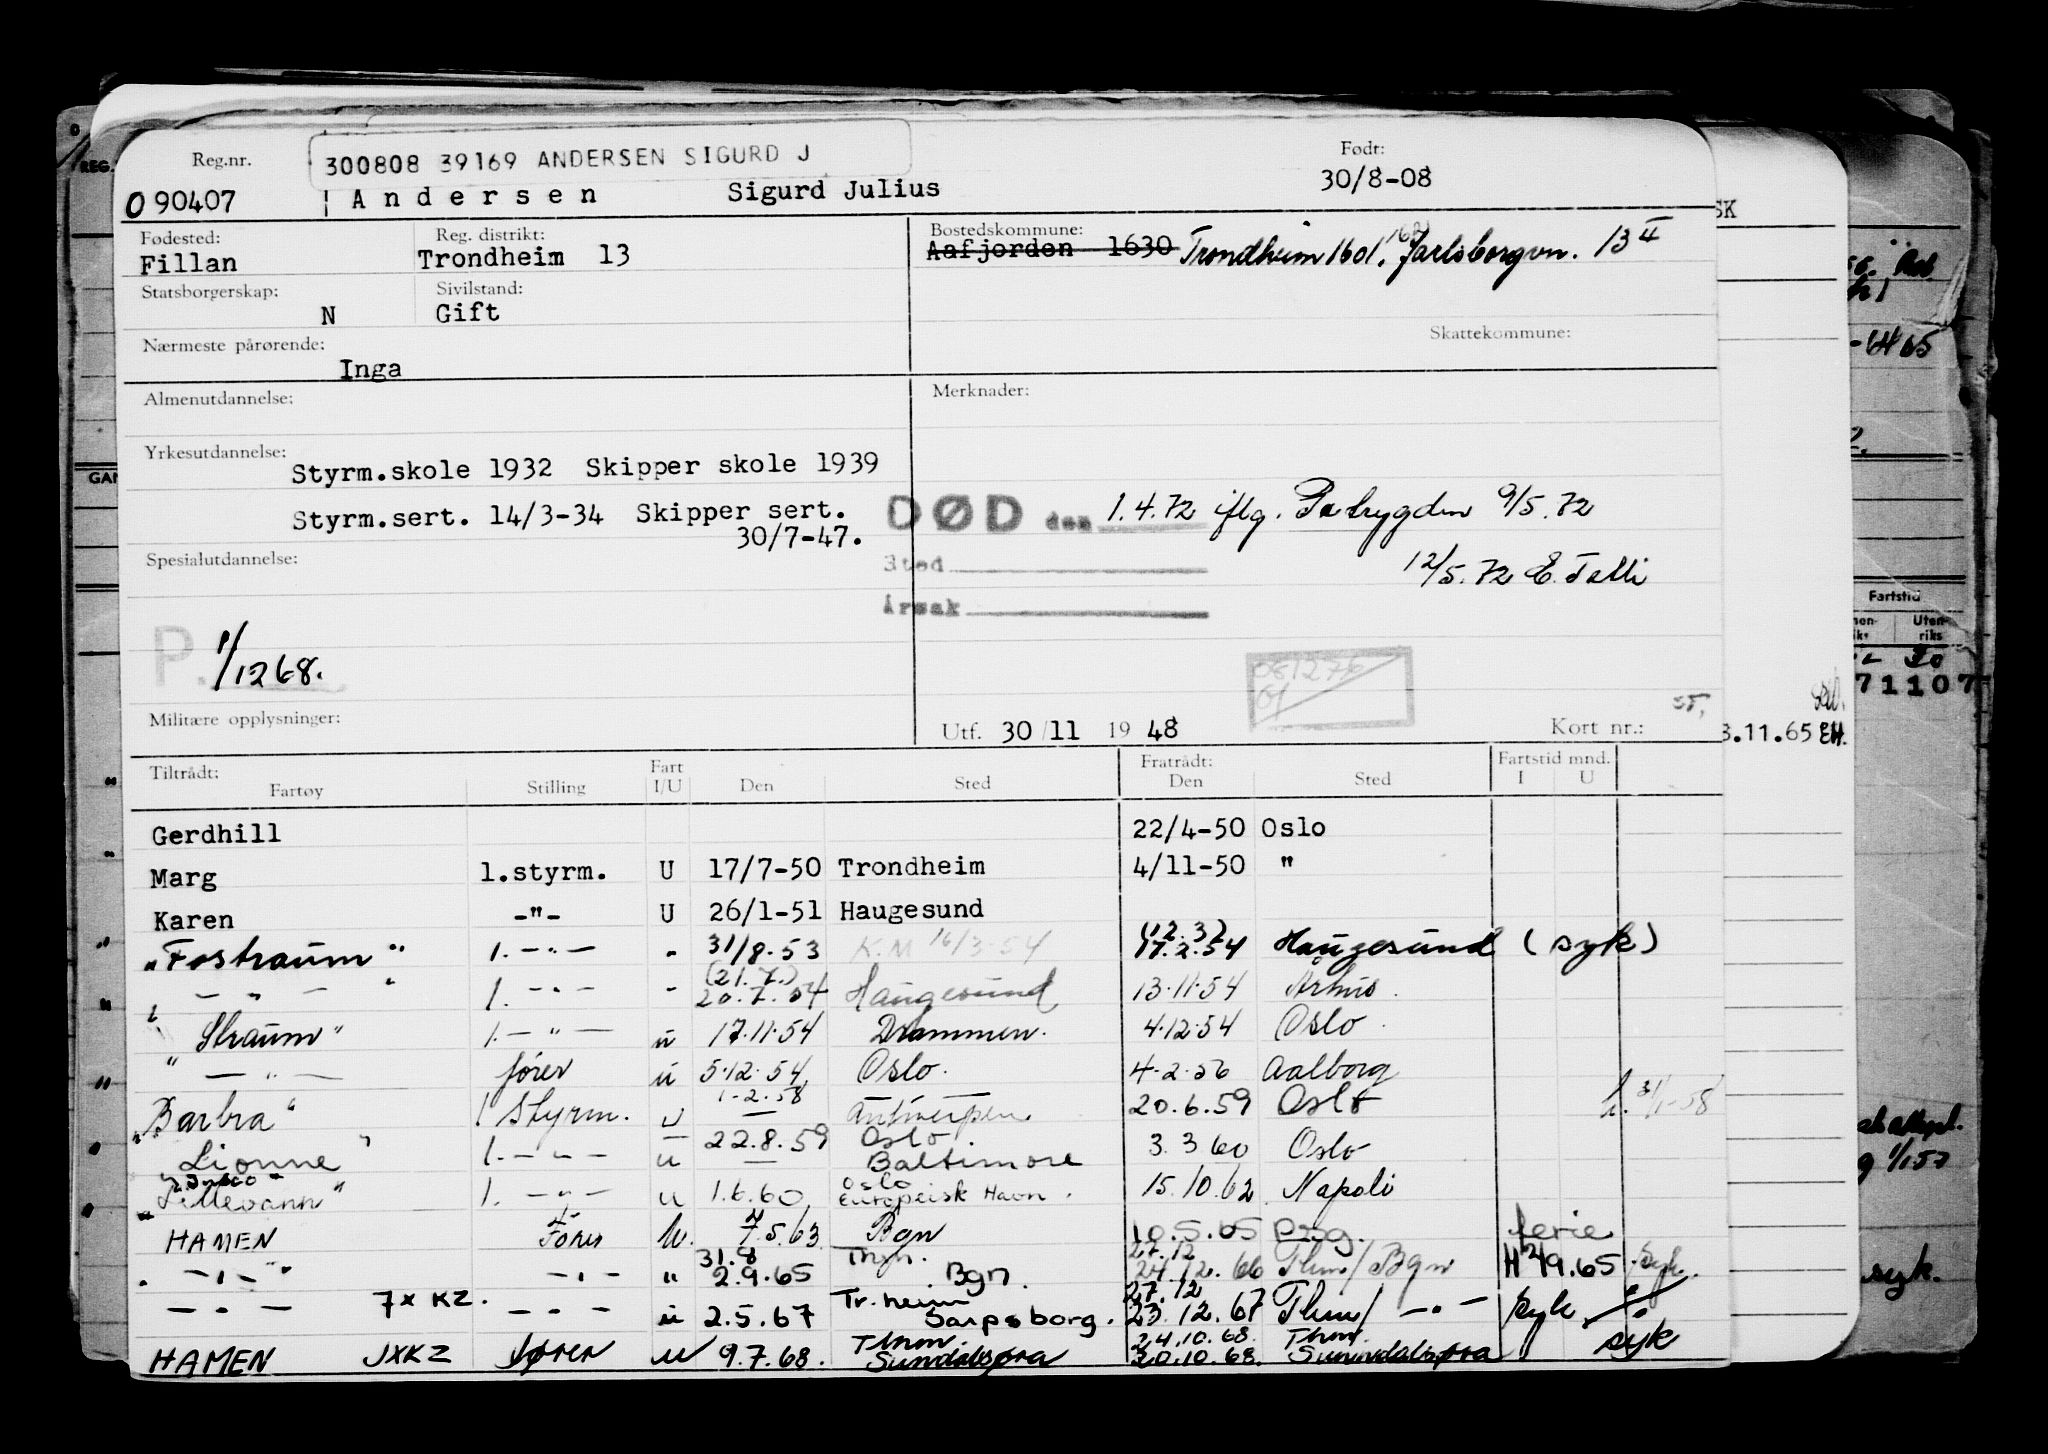 Reg.nr.
300808 39169 ANDERSEN SIGURD J
Født:
090407 Andersen Sigurd Julius 30/8-08
Fødested: Reg. distrikt: Bostedskommune:
Fillan Trondheim 13 Aafjorden 1630 Trondheim 1601. Jarlsborgvn. 13 II
Statsborgerskap: Sivilstand:
N Gift
Nærmeste pårørende: Skattekommune:
Inga
Almenutdannelse: Merknader:
Yrkesutdannelse:
Styrm.skole 1932 Skipper skole 1939
Styrm.sert. 14/3-34 Skipper sert.
30/7-47.
DØD den 1.4.72 iflg. 9/5.72
Spesialutdannelse: Sted 12/5.72
Årsak
P. 1/1268.
081276
01
Militære opplysninger: Utf. 30/11 1948 Kort nr.:
3.11.65 EH.
Tiltrådt: Fart Fratrådt: Fartstid mnd.
Fartøy Stilling I/U Den Sted Den Sted I U
Gerdhill 22/4-50 Oslo
Marg 1.styrm. U 17/7-50 Trondheim 4/11-50 "
Karen -"- U 26/1-51 Haugesund
(12.3)
"Fostraum" 1. -"- - 31/8.53 K.M 16/3-54 17.2.54 Haugesund (syk)
(21.7.)
- " - 1. -"- - 20.7.54 Haugesund 13.11.54 Århus.
"Straum" 1. -"- u 17.11.54 Drammen. 4.12.54 Oslo.
- " - fører u 5.12.54 Oslo. 4.2.56 Aalborg
"Barbra" 1 Styrm. u 1.2.58 Antwerpen 20.6.59 Oslo 31/1-58
"Lionne" 1. -"- u 22.8.59 Oslo. Baltimore 3.3.60 Oslo
"Lillevann" 1. -"- u 1.6.60 Oslo Europeisk Havn. 15.10.62 Napoli
HAMEN Fører u. 7.5.63 Bgn 10.5.65 Bsg. ferie
31.8 Thm. 27.12
-"- -"- " 2.9.65 Bgn. 24.12.66 Thm/Bgn 9.65 syk.
Tr.heim 27.12
-"- JXKZ. -"- u 2.5.67 Sarpsborg. 23.12.67 Thm/ -"- syk
Thm. 24.10.68. Thm. syk
HAMEN JXKZ fører u 9.7.68. Sundalsøra 20.10.68. Sunndalsøra
REG.
SK
Fartstid
Uten-
riks
71107
syk.